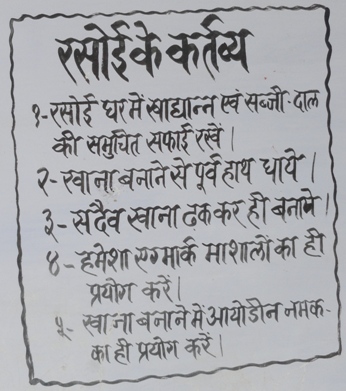 रसोई के कर्तव्य
१- रसोई घर में खाद्यान्न एवं सब्जी-दाल
की समुचित सफाई रखें।
२- खाना बनाने से पूर्व हाथ धोये।
३- सदैव खाना ढक कर ही बनाये।
४- हमेशा एगमार्क माशालों का ही
प्रयोग करें।
५- खाना बनाने में आयोडीन नमक-
का ही प्रयोग करें।